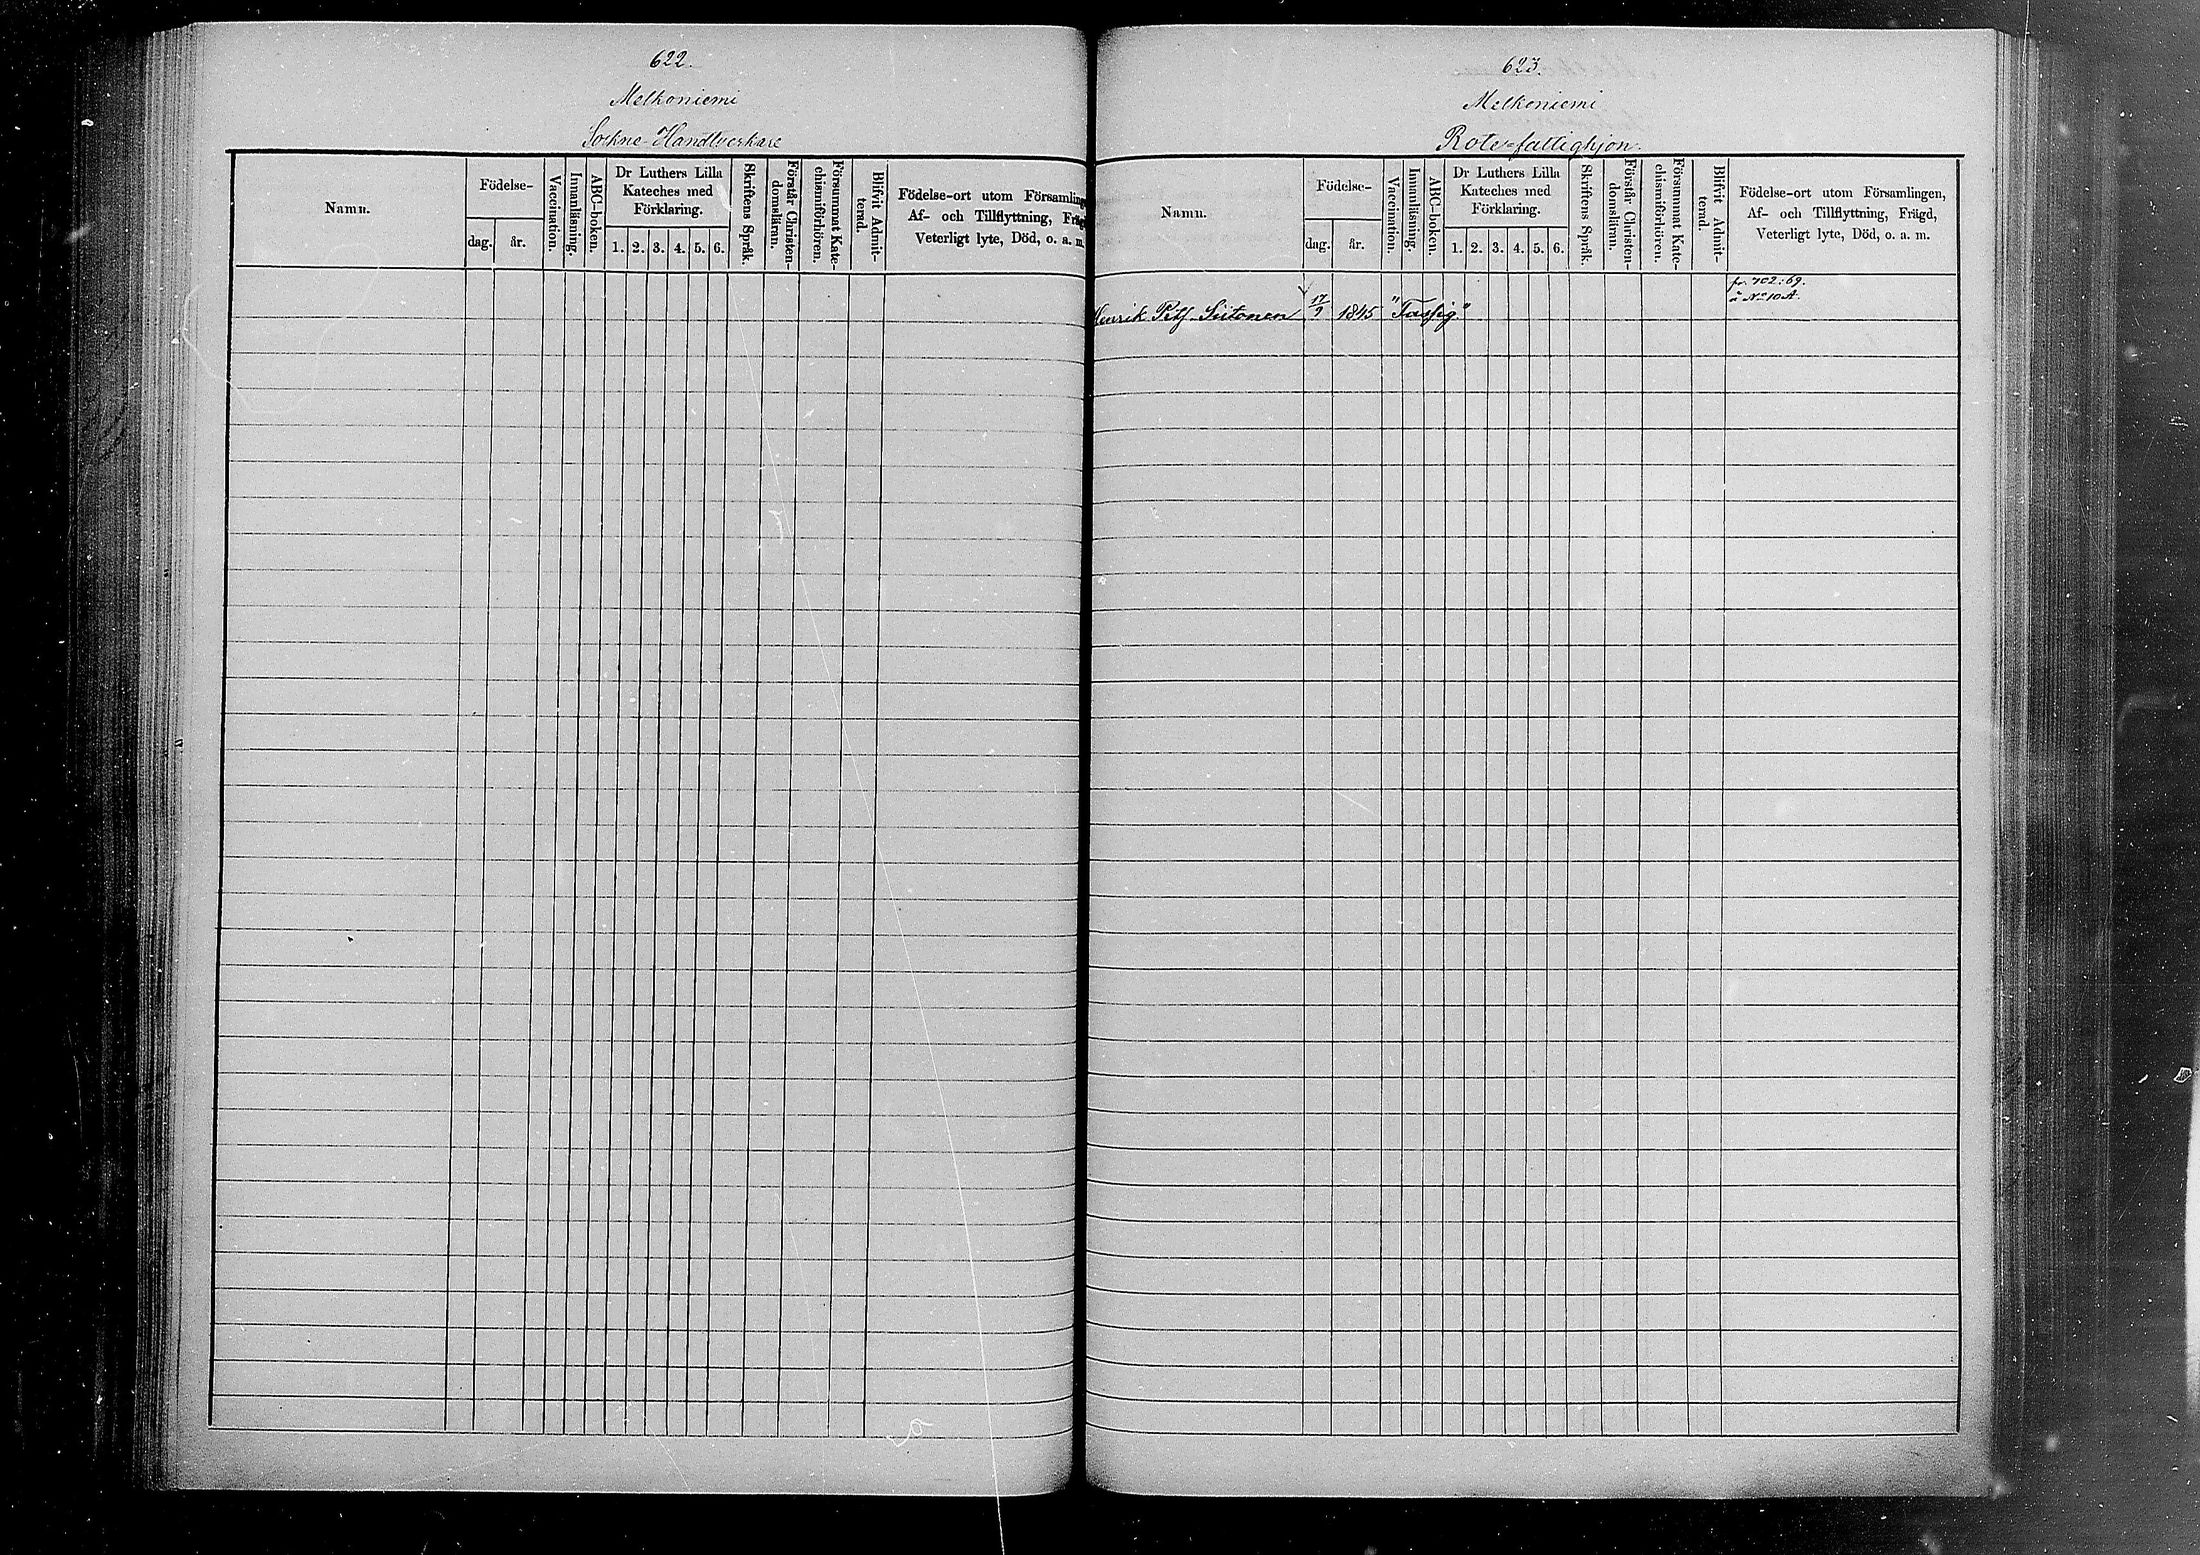 622.
Melkoniemi
Sockne-Handtverkare
Namn.
Födelse-
dag.
år.
Vaccination.
Innanläsning.
ABC-boken.
Dr Luthers Lilla
Kateches med
Förklaring.
1. 2. 3. 4. 5. 6.
Skriftens Språk.
Förstår Christen-
domsläran.
Försummat Kate-
chismiförhören.
Blifvit Admit-
terad.
Födelse-ort utom Församling
Af- och Tillflyttning, Fräg
Veterligt lyte, Död, o. a. m.
623.
Melkoniemi
Rote-fattighjon.
Namn.
Födelse-
dag.
år.
Vaccination.
Innanläsning.
ABC-boken.
Dr Luthers Lilla
Kateches med
Förklaring.
1. 2. 3. 4. 5. 6.
Skriftens Språk.
Förstår Christen-
domsläran.
Försummat Kate-
chismiförhören.
Blifvit Admit-
terad.
Födelse-ort utom Församlingen,
Af- och Tillflyttning, Frägd,
Veterligt lyte, Död, o. a. m.
fr. 702:69.
å No 10 A.
Henrik Petf. Siitonen 17/9 1845 "Tassig"